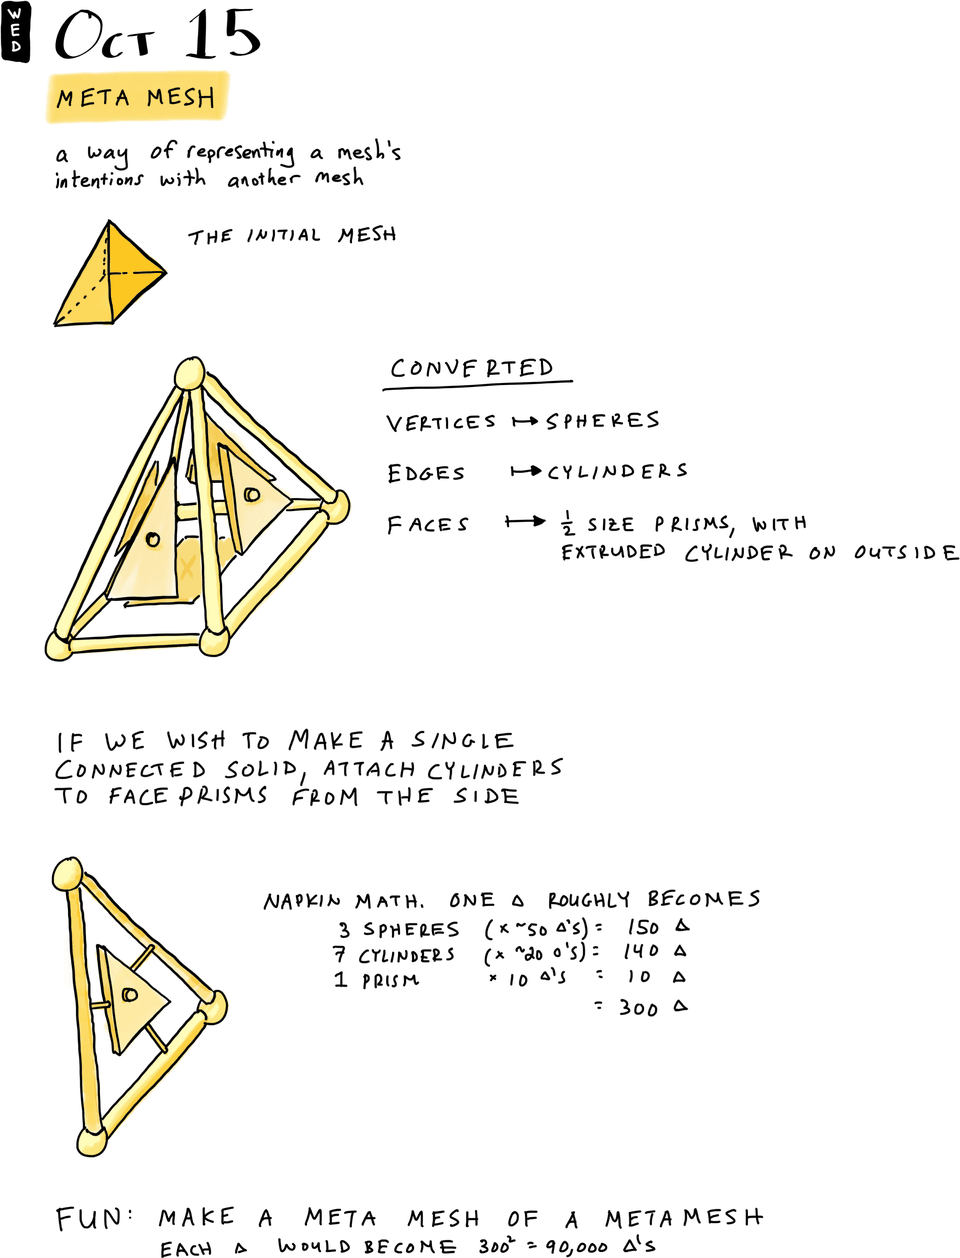 WED
OCT 15
META MESH
a way of representing a mesh's
intentions with another mesh
THE INITIAL MESH
CONVERTED
VERTICES ↦ SPHERES
EDGES ↦ CYLINDERS
FACES ↦ 1/2 SIZE PRISMS, WITH
EXTRUDED CYLINDER ON OUTSIDE
IF WE WISH TO MAKE A SINGLE
CONNECTED SOLID, ATTACH CYLINDERS
TO FACE PRISMS FROM THE SIDE
NAPKIN MATH. ONE Δ ROUGHLY BECOMES
3 SPHERES (x ~50 Δ'S) = 150 Δ
7 CYLINDERS (x ~20 Δ'S) = 140 Δ
1 PRISM x 10 Δ'S = 10 Δ
= 300 Δ
FUN: MAKE A META MESH OF A METAMESH
EACH Δ WOULD BECOME 300² = 90,000 Δ'S